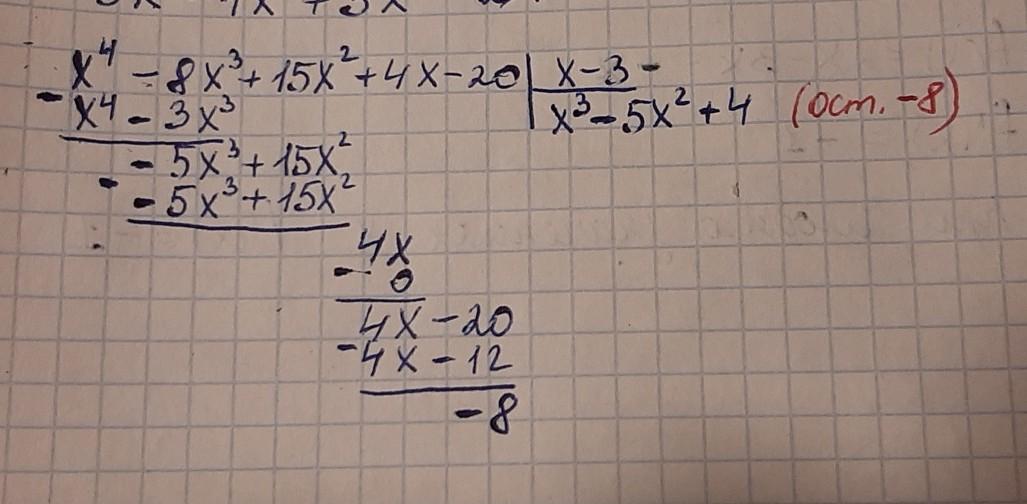 x⁴ - 8x³ + 15x² + 4x - 20 | x - 3
- x⁴ - 3x³
x³ - 5x² + 4 (ост. -8)
- 5x³ + 15x²
- - 5x³ + 15x²
4x
- 0
4x - 20
- 4x - 12
- 8